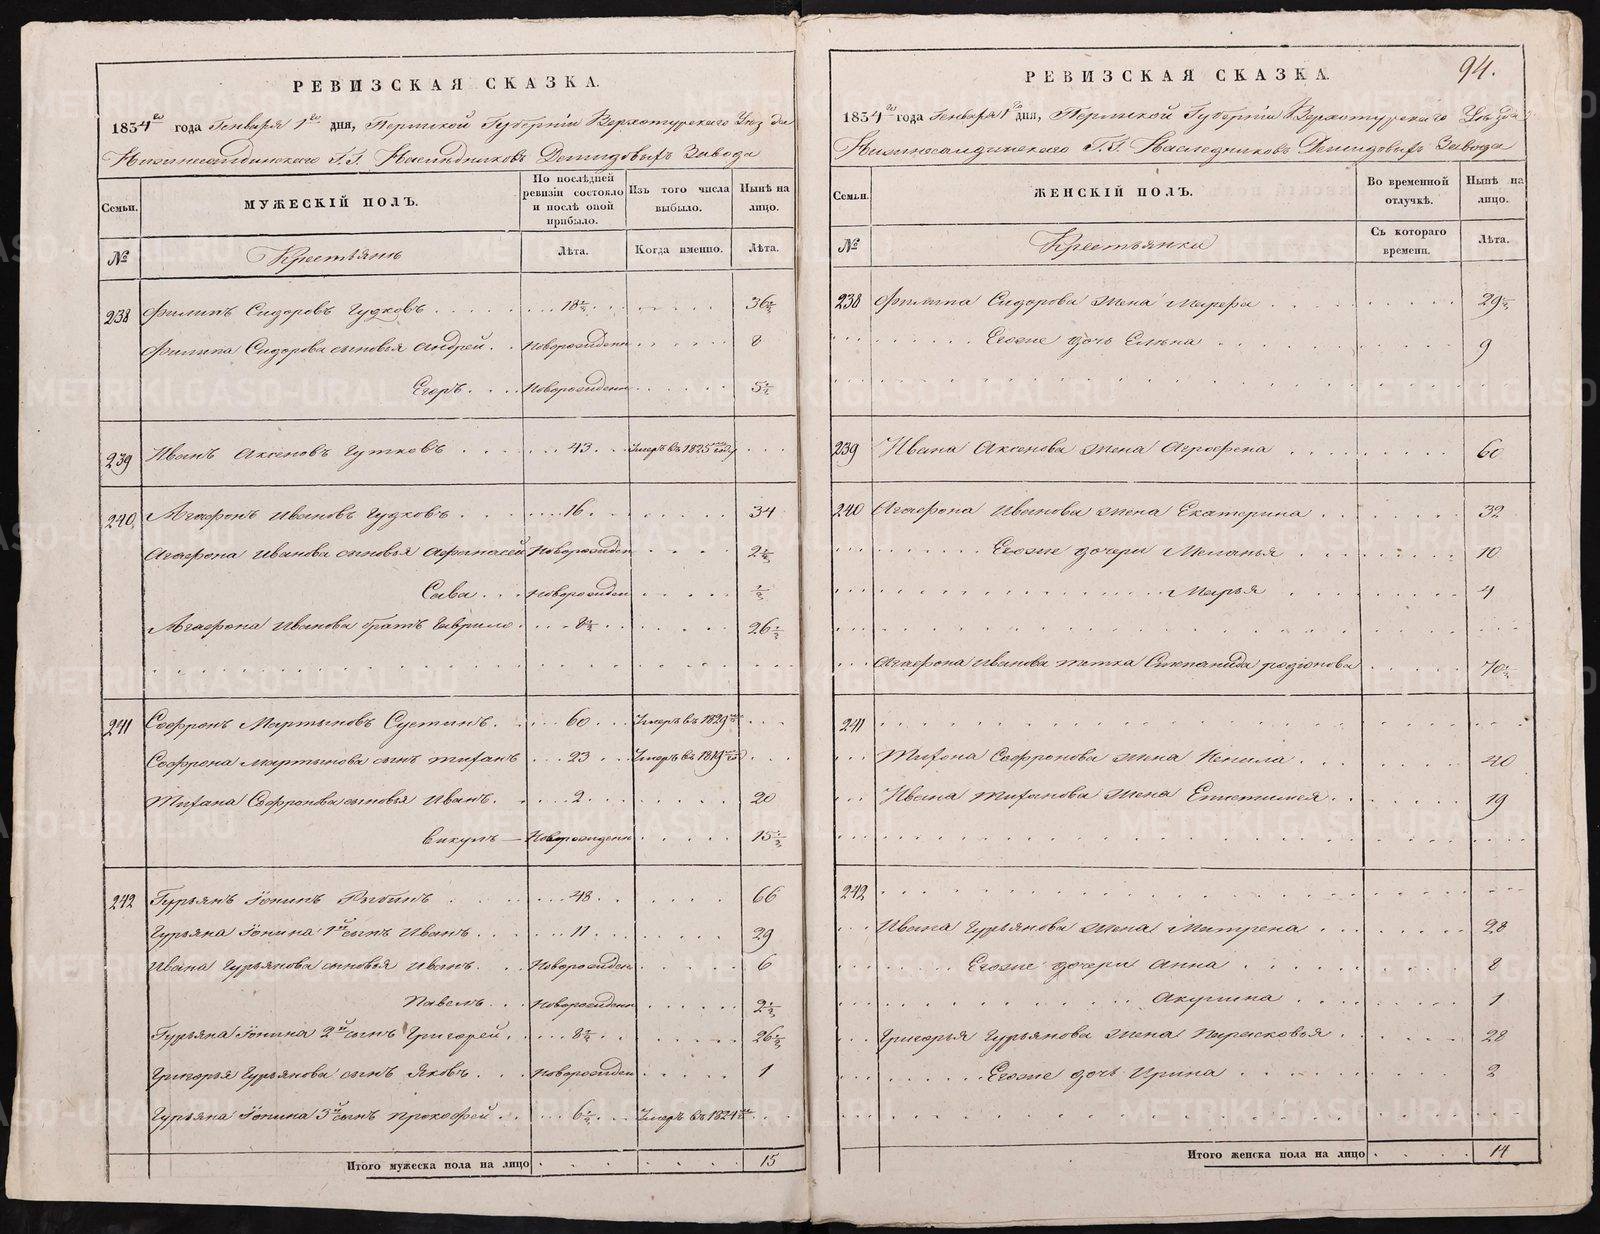 РЕВИЗСКАЯ СКАЗКА.
1834го года Генваря 1го дня, Пермской Губернiи Верхотурского Уезда
Нижнесалдинского Г.Г. Наследниковъ Демидовыхъ Завода
Семьи.
МУЖЕСКIЙ ПОЛЪ.
По послѣдней ревизiи состояло и послѣ оной прибыло.
Изъ того числа выбыло.
Нынѣ на лицо.
№
Крестьянъ
Лѣта.
Когда именно.
Лѣта.
238 Филипъ Сидоровъ Гудковъ 18½ 36½
Филипа Сидорова сыновья Андрей Новорожденн 8
Егоръ Новорожденн 5½
239 Иванъ Аксеновъ Гутковъ 43 Умеръ въ 1825 году
240 Агафонъ Ивановъ Гудковъ 16 34
Агафона Иванова сыновья Афанасей Новорожден 2½
Сава Новорожден ½
Агафона Иванова братъ Гаврило 8½ 26½
241 Софронъ Мартыновъ Сустинъ 60 Умеръ въ 1829
Софрона Мартынова сынъ Тифанъ 23 Умеръ въ 1819
Тифана Софронова сыновья Иванъ 2 20
Викулъ Новорожденн 15½
242 Гурьянъ Iонинъ Рыбинъ 48 66
Гурьяна Iонина 1й сынъ Иванъ 11 29
Ивана Гурьянова сыновья Иванъ Новорожден 6
Павелъ Новорожденн 2½
Гурьяна Iонина 2й сынъ Григорей 8½ 26½
Григорья Гурьянова сынъ Яковъ Новорожден 1
Гурьяна Iонина 3й сынъ Прокофей 6½ Умеръ въ 1824
Итого мужеска пола на лицо 15
94.
РЕВИЗСКАЯ СКАЗКА.
1834го года Генваря 1го дня, Пермской Губернiи Верхотурского Уѣзда
Нижнесалдинского Г.Г. Наследниковъ Демидовыхъ Завода
Семьи.
ЖЕНСКIЙ ПОЛЪ.
Во временной отлучкѣ.
Нынѣ на лицо.
№
Крестьянки
Съ котораго времени.
Лѣта.
238 Филипа Сидорова жена Марфа 29½
Егоже дочь Елена 9
239 Ивана Аксенова жена Агрофена 60
240 Агафона Иванова жена Екатерина 32
Егоже дочери Меланья 10
Марья 4
Агафона Иванова тетка Степанида Родiонова 70½
241
Тифона Софронова жена Ненила 40
Ивана Тифанова жена Епистимея 19
242
Ивана Гурьянова жена Матрена 28
Егоже дочери Анна 8
Акулина 1
Григорья Гурьянова жена Парасковья 28
Егоже дочь Ирина 2
Итого женска пола на лицо 14
METRIKI.GASO-URAL.RU